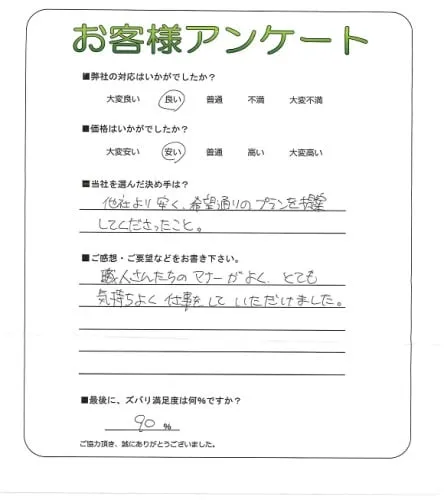 お客様アンケート
■弊社の対応はいかがでしたか?
大変良い 良い 普通 不満 大変不満
■価格はいかがでしたか?
大変安い 安い 普通 高い 大変高い
■当社を選んだ決め手は?
他社より安く、希望通りのプランを提案
してくださったこと。
■ご感想・ご要望などをお書き下さい。
職人さんたちのマナーがよく、とても
気持ちよく仕事をしていただけました。
■最後に、ズバリ満足度は何%ですか?
90 %
ご協力頂き、誠にありがとうございました。